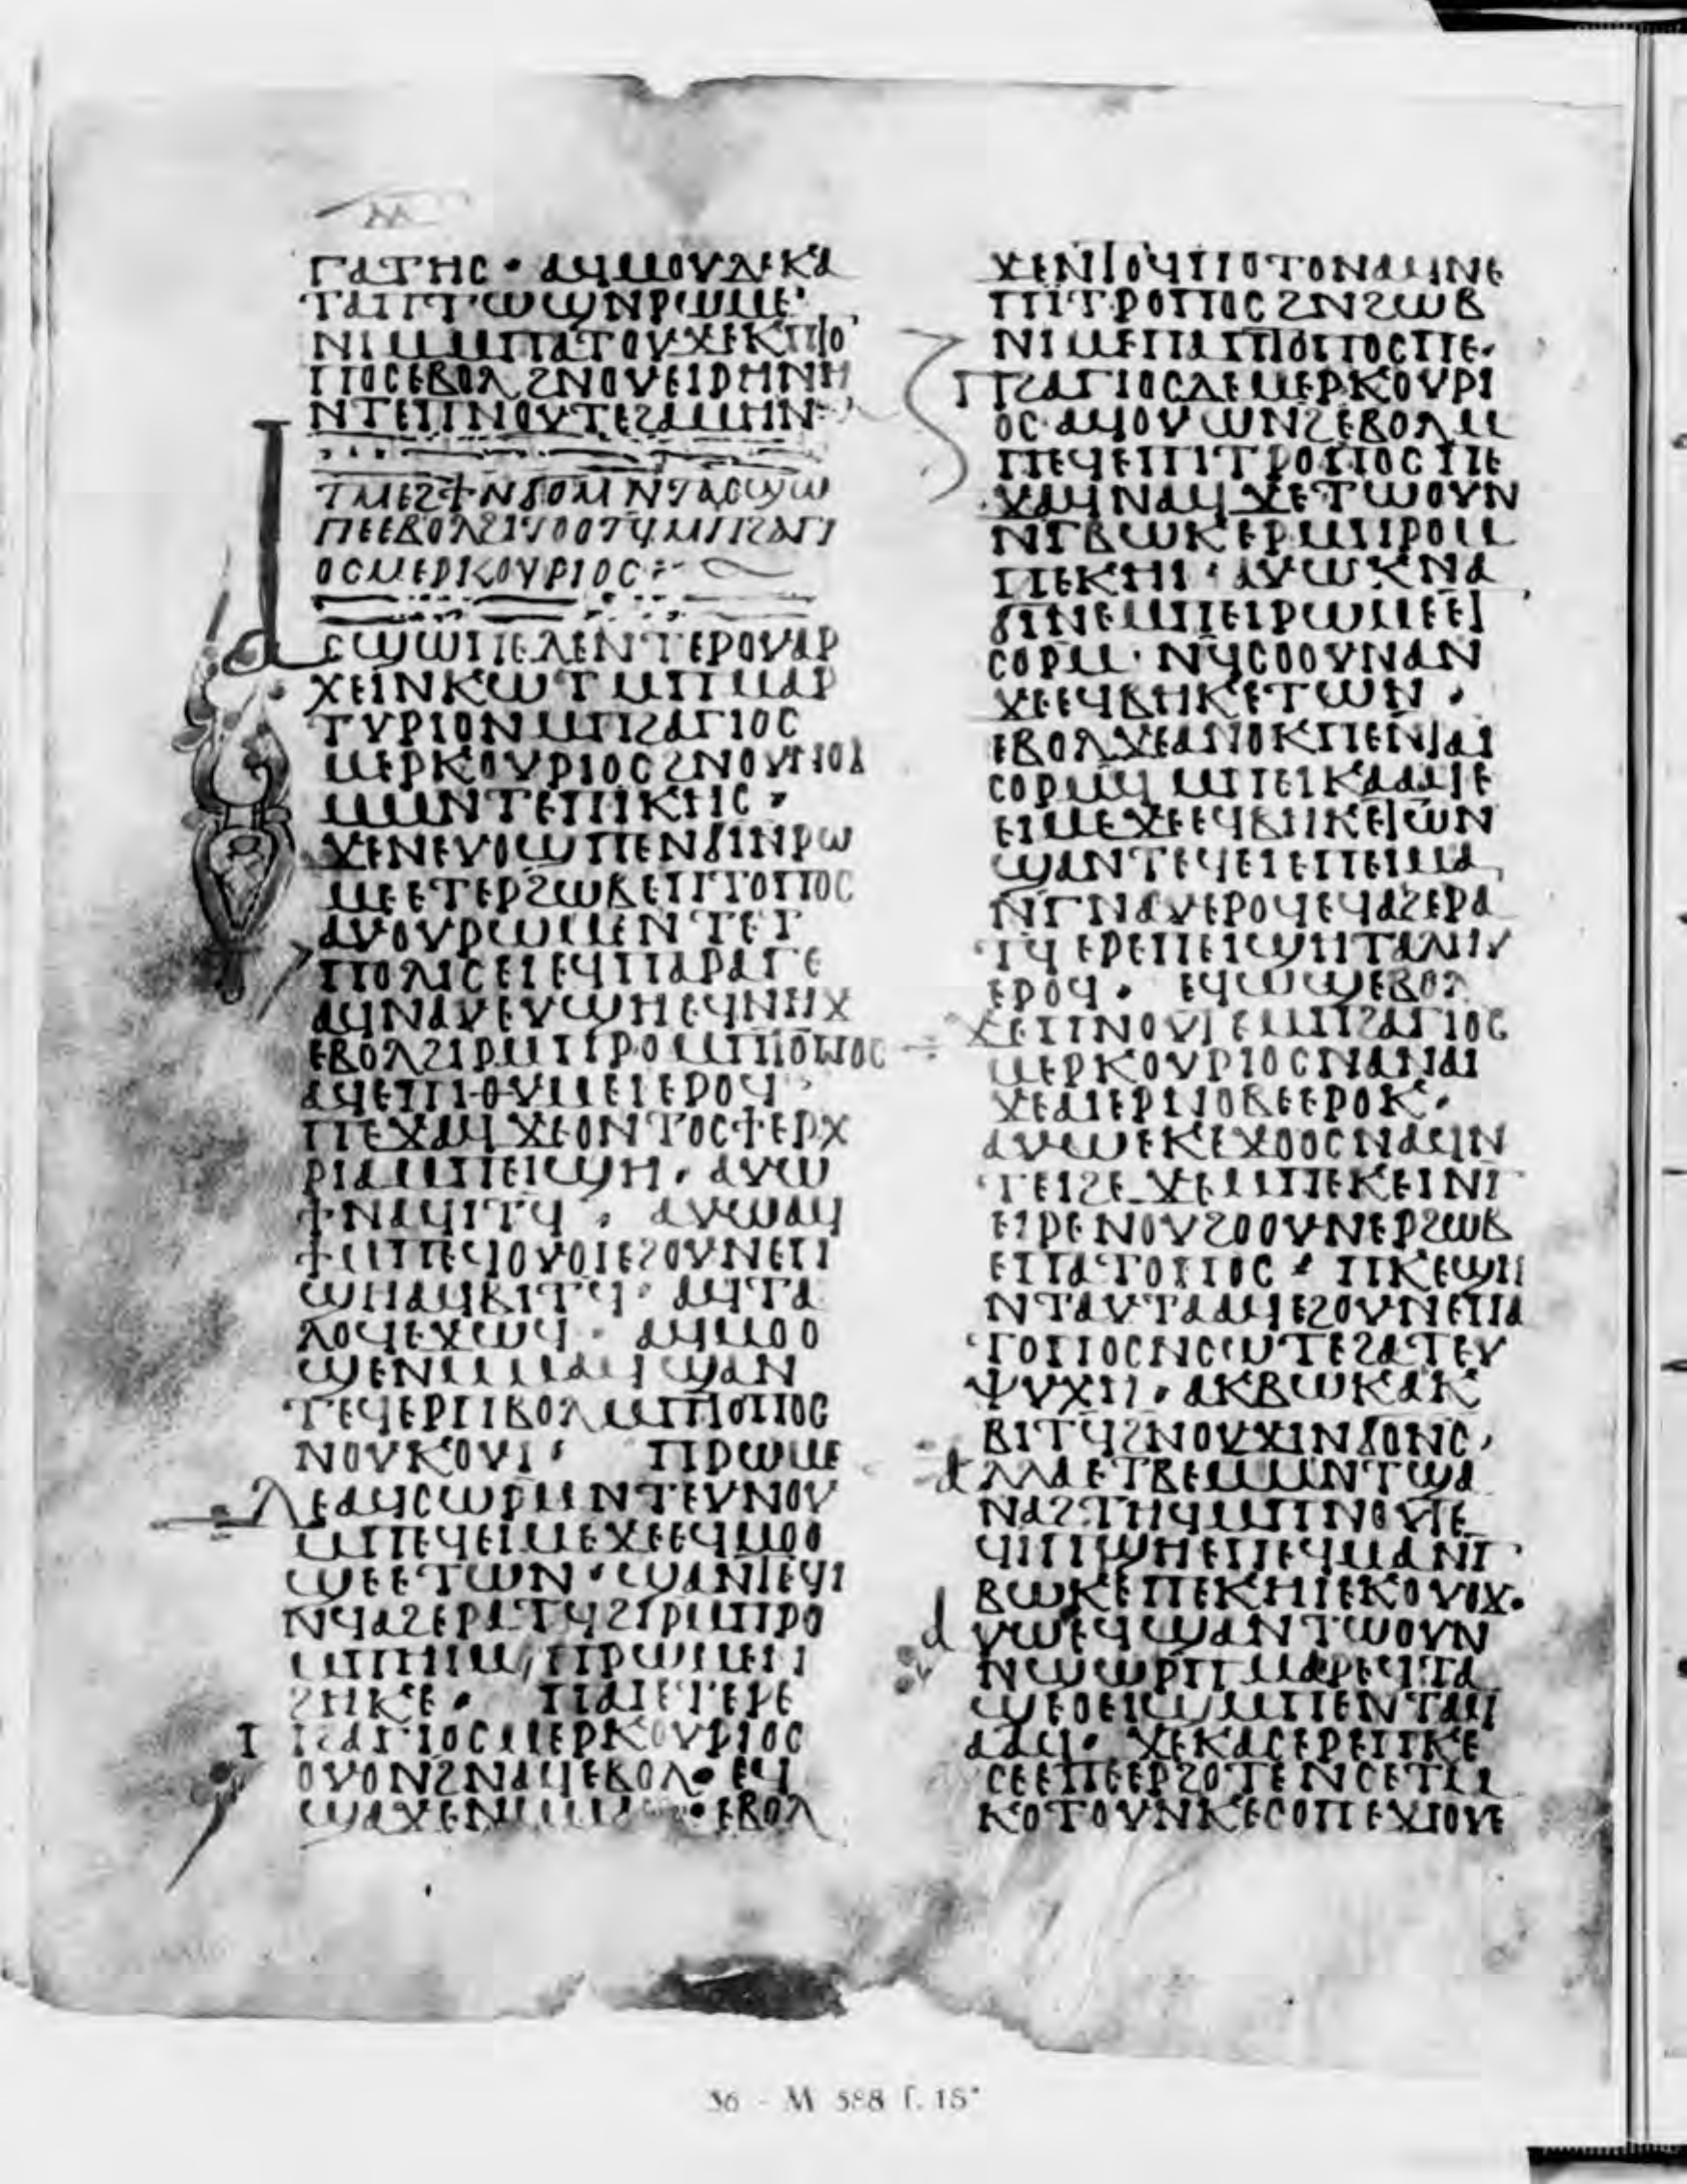 ⲅⲁⲧⲏⲥ · ⲁϥⲙⲟⲩⲇⲉⲕⲁ
ⲧⲁⲡⲧⲱϣⲛⲣⲱⲙⲉ·
ⲛⲓⲙⲙⲡⲁⲧⲟⲩϫⲉⲕⲡⲧⲟ
ⲡⲟⲥⲉⲃⲟⲗϩⲛⲟⲩⲉⲓⲣⲏⲛⲏ
ⲛⲧⲉⲡⲛⲟⲩⲧⲉϩⲁⲙⲏⲛ
ⲧⲙⲉϩϯⲛϭⲟⲙⲛⲧⲁⲥϣⲱ
ⲡⲉⲉⲃⲟⲗϩⲓⲧⲟⲟⲧϥⲙⲡϩⲁⲅⲓ
ⲟⲥⲙⲉⲣⲕⲟⲩⲣⲓⲟⲥ
ⲁⲥϣⲱⲡⲉⲇⲉⲛⲧⲉⲣⲟⲩⲁⲣ
ⲭⲉⲓⲛⲕⲱⲧⲙⲡⲙⲁⲣ
ⲧⲩⲣⲓⲟⲛⲙⲡϩⲁⲅⲓⲟⲥ
ⲙⲉⲣⲕⲟⲩⲣⲓⲟⲥϩⲛⲟⲩⲛⲟϭ
ⲙⲙⲛⲧⲉⲡⲓⲕⲏⲥ
ϫⲉⲛⲉⲩⲟϣⲡⲉⲛϭⲓⲛⲣⲱ
ⲙⲉⲉⲧⲉⲣϩⲱⲃⲉⲡⲧⲟⲡⲟⲥ
ⲁⲩⲟⲩⲣⲱⲙⲉⲛⲧⲉⲧ
ⲡⲟⲗⲓⲥⲉⲓⲉϥⲡⲁⲣⲁⲅⲉ
ⲁϥⲛⲁⲩⲉⲩϣⲏⲉϥⲛⲏϫ
ⲉⲃⲟⲗϩⲓⲣⲙⲡⲣⲟⲙⲡⲧⲟⲡⲟⲥ
ⲁϥⲉⲡⲓⲑⲩⲙⲉⲓⲉⲣⲟϥ
ⲡⲉϫⲁϥϫⲉⲟⲛⲧⲟⲥϯⲉⲣⲭ
ⲣⲓⲁⲙⲡⲉⲓϣⲏ · ⲁⲩⲱ
ϯⲛⲁϥⲓⲧϥ · ⲁⲩⲱⲁϥ
ϯⲙⲡⲉϥⲟⲩⲟⲓⲉϩⲟⲩⲛⲉⲡ
ϣⲏⲁϥϥⲓⲧϥ · ⲁϥⲧⲁ
ⲗⲟϥⲉϫⲱϥ · ⲁϥⲙⲟⲟ
ϣⲉⲛⲙⲙⲁϥϣⲁⲛ
ⲧⲉϥⲉⲣⲡⲃⲟⲗⲙⲡⲧⲟⲡⲟⲥ
ⲛⲟⲩⲕⲟⲩⲓ ⲡⲣⲱⲙⲉ
ⲇⲉⲁϥⲥⲱⲣⲙⲛⲧⲉⲩⲛⲟⲩ
ⲙⲡⲉϥⲉⲓⲙⲉϫⲉⲉϥⲙⲟⲟ
ϣⲉⲉⲧⲱⲛ · ϣⲁⲛⲧⲉϥⲓ
ⲛϥⲁϩⲉⲣⲁⲧϥϩⲓⲣⲙⲡⲣⲟ
ⲙⲡⲏⲓ ⲙⲡⲣⲱⲙⲉⲛ
ϩⲏⲕⲉ · ⲡⲁⲓⲉⲧⲉⲣⲉ
ⲡϩⲁⲅⲓⲟⲥⲙⲉⲣⲕⲟⲩⲣⲓⲟⲥ
ⲟⲩⲟⲛϩⲛⲁϥⲉⲃⲟⲗ · ⲉϥ
ϣⲁϫⲉⲛⲙⲙⲁϥ · ⲉⲃⲟⲗ
ϫⲉⲛⲧⲟϥⲡⲟⲧⲟⲛⲁϥⲛⲉ
ⲡⲓⲧⲣⲟⲡⲟⲥϩⲛϩⲱⲃ
ⲛⲓⲙⲉⲡⲁⲡⲧⲟⲡⲟⲥⲡⲉ·
ⲡϩⲁⲅⲓⲟⲥⲇⲉⲙⲉⲣⲕⲟⲩⲣⲓ
ⲟⲥ·ⲁϥⲟⲩⲱⲛϩⲉⲃⲟⲗⲙ
ⲡⲉϥⲉⲡⲓⲧⲣⲟⲡⲟⲥⲡⲉ
ϫⲁϥⲛⲁϥϫⲉⲧⲱⲟⲩⲛ
ⲛⲅⲃⲱⲕⲉⲣⲙⲡⲣⲟⲙ
ⲡⲉⲕⲏⲓ · ⲁⲩⲱⲕⲛⲁ
ϭⲓⲛⲉⲙⲡⲉⲓⲣⲱⲙⲉⲉⲧ
ⲥⲟⲣⲙ·ⲛϥⲥⲟⲟⲩⲛⲁⲛ
ϫⲉⲉϥⲃⲏⲕⲉⲧⲱⲛ ·
ⲉⲃⲟⲗϫⲉⲁⲛⲟⲕⲡⲉⲛⲧⲁⲓ
ⲥⲟⲣⲙϥ ⲙⲡⲉⲓⲕⲁⲁϥⲉ
ⲉⲓⲙⲉϫⲉⲉϥⲃⲏⲕⲉⲧⲱⲛ
ϣⲁⲛⲧⲉϥⲉⲓⲉⲡⲉⲓⲙⲁ
ⲛⲅⲛⲁⲩⲉⲣⲟϥⲉϥⲁϩⲉⲣⲁ
ⲧϥ ⲉⲣⲉⲡⲉⲓϣⲏⲧⲁⲗⲏⲩ
ⲉⲣⲟϥ · ⲉϥⲱϣⲉⲃⲟⲗ
ϫⲉⲡⲛⲟⲩⲧⲉⲙⲡϩⲁⲅⲓⲟⲥ
ⲙⲉⲣⲕⲟⲩⲣⲓⲟⲥⲛⲁⲛⲁⲓ
ϫⲉⲁⲓⲉⲣⲛⲟⲃⲉⲉⲣⲟⲕ·
ⲁⲩⲱⲉⲕⲉϫⲟⲟⲥⲛⲁϥⲛ
ⲧⲉⲓϩⲉ ϫⲉⲙⲡⲉⲕⲉⲓⲛⲧ
ⲉⲓⲣⲉⲛⲟⲩϩⲟⲟⲩⲛⲉⲣϩⲱⲃ
ⲉⲡⲁⲧⲟⲡⲟⲥ ⲡⲕⲉϣⲏ
ⲛⲧⲁⲩⲧⲁⲁϥⲉϩⲟⲩⲛⲉⲡⲁ
ⲧⲟⲡⲟⲥⲛⲥⲱⲧⲉϩⲁⲧⲉⲩ
ⲯⲩⲭⲏ · ⲁⲕⲃⲱⲕⲁⲕ
ϥⲓⲧϥϩⲛⲟⲩϫⲓⲛϭⲟⲛⲥ,
ⲁⲗⲗⲁⲉⲧⲃⲉⲙⲙⲛⲧϣⲁ
ⲛⲁϩⲧⲏϥⲙⲡⲛⲟⲩⲧⲉ
ϥⲓⲡϣⲏⲉⲡⲉϥⲙⲁⲛⲅ
ⲃⲱⲕⲉⲡⲉⲕⲏⲓⲉⲕⲟⲩⲟϫ·
ⲁⲩⲱⲉϥϣⲁⲛⲧⲱⲟⲩⲛ
ⲛϣⲱⲣⲡ ⲙⲁⲣⲉϥⲧⲁ
ϣⲉⲟⲉⲓϣⲙⲡⲉⲛⲧⲁϥ
ⲁⲁϥ· ϫⲉⲕⲁⲥⲉⲣⲉⲡⲕⲉ
ⲥⲉⲉⲡⲉⲉⲣϩⲟⲧⲉⲛⲥⲉⲧⲙ
ⲕⲟⲧⲟⲩⲛⲕⲉⲥⲟⲡⲉϫⲓⲟⲩⲉ
36 - M 588 f. 15ᵛ